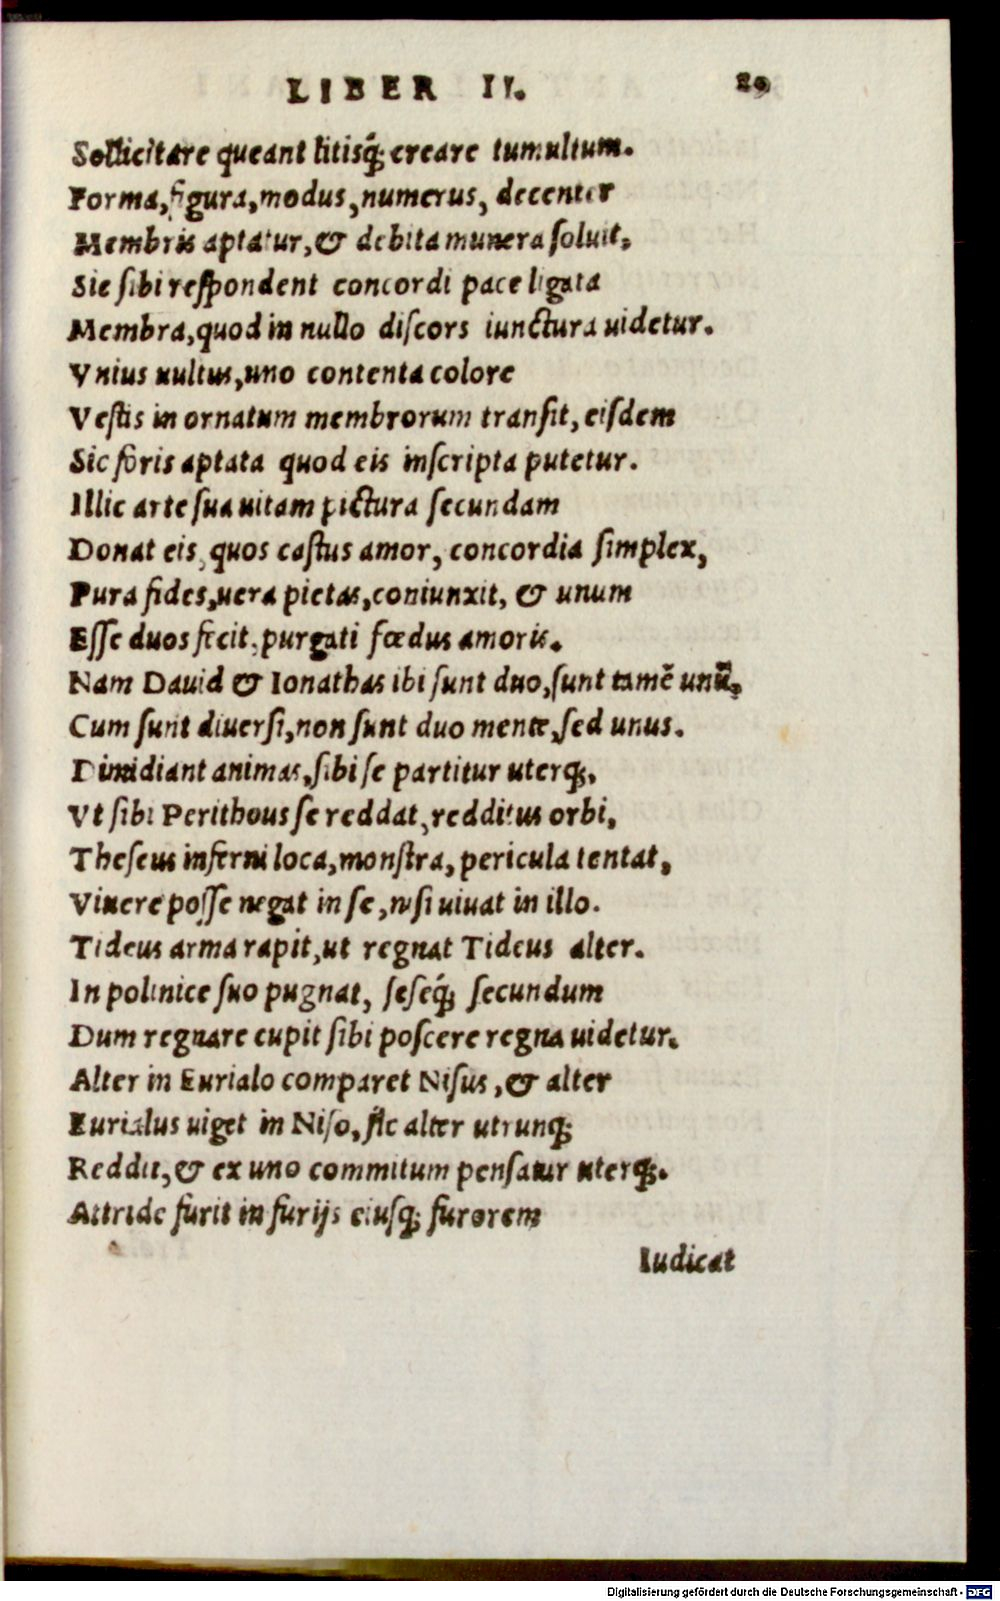 LIBER II. 29
Sollicitare queant litisq́; creare tumultum.
Forma, figura, modus, numerus, decenter
Membris aptatur, & debita munera soluit,
Sic sibi respondent concordi pace ligata
Membra, quod in nullo discors iunctura uidetur.
Vnius uultus, uno contenta colore
Vestis in ornatum membrorum transit, eisdem
Sic foris aptata quod eis inscripta putetur.
Illic arte sua uitam pictura secundam
Donat eis, quos castus amor, concordia simplex,
Pura fides, uera pietas, coniunxit, & unum
Esse duos fecit, purgati fœdus amoris.
Nam Dauid & Ionathas ibi sunt duo, sunt tamẽ unũ,
Cum sunt diuersi, non sunt duo mente, sed unus.
Dimidiant animas, sibi se partitur uterq;,
Vt sibi Perithous se reddat, redditus orbi,
Theseus inferni loca, monstra, pericula tentat,
Viuere posse negat in se, nisi uiuat in illo.
Tideus arma rapit, ut regnat Tideus alter.
In polinice suo pugnat, seseq́; secundum
Dum regnare cupit sibi poscere regna uidetur.
Alter in Eurialo comparet Nisus, & alter
Eurialus uiget in Niso, sic alter utrunq;
Reddit, & ex uno commitum pensatur uterq;.
Attride furit in furijs eiusq; furorem
Iudicat
Digitalisierung gefördert durch die Deutsche Forschungsgemeinschaft - DFG